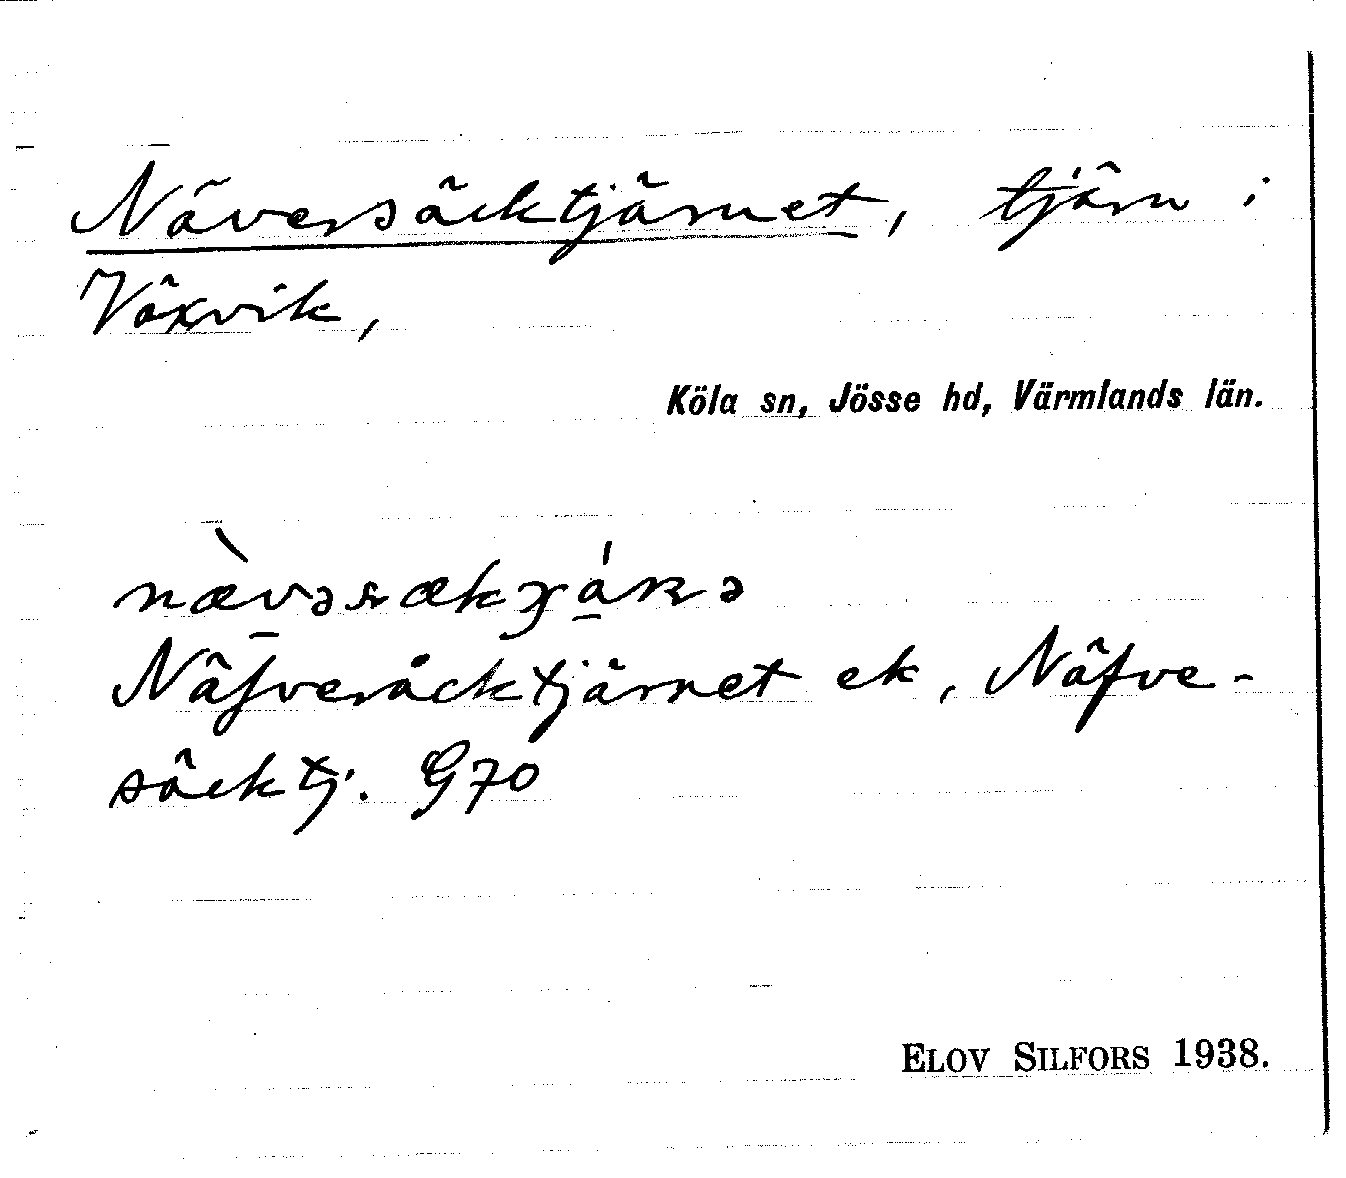 Näversäcktjärnet, tjärn i
Växvik,
Köla sn, Jösse hd, Värmlands län.
Näfveråcktjärnet ek, Näfve-
säcktj. G70
ELOV SILFORS 1938.